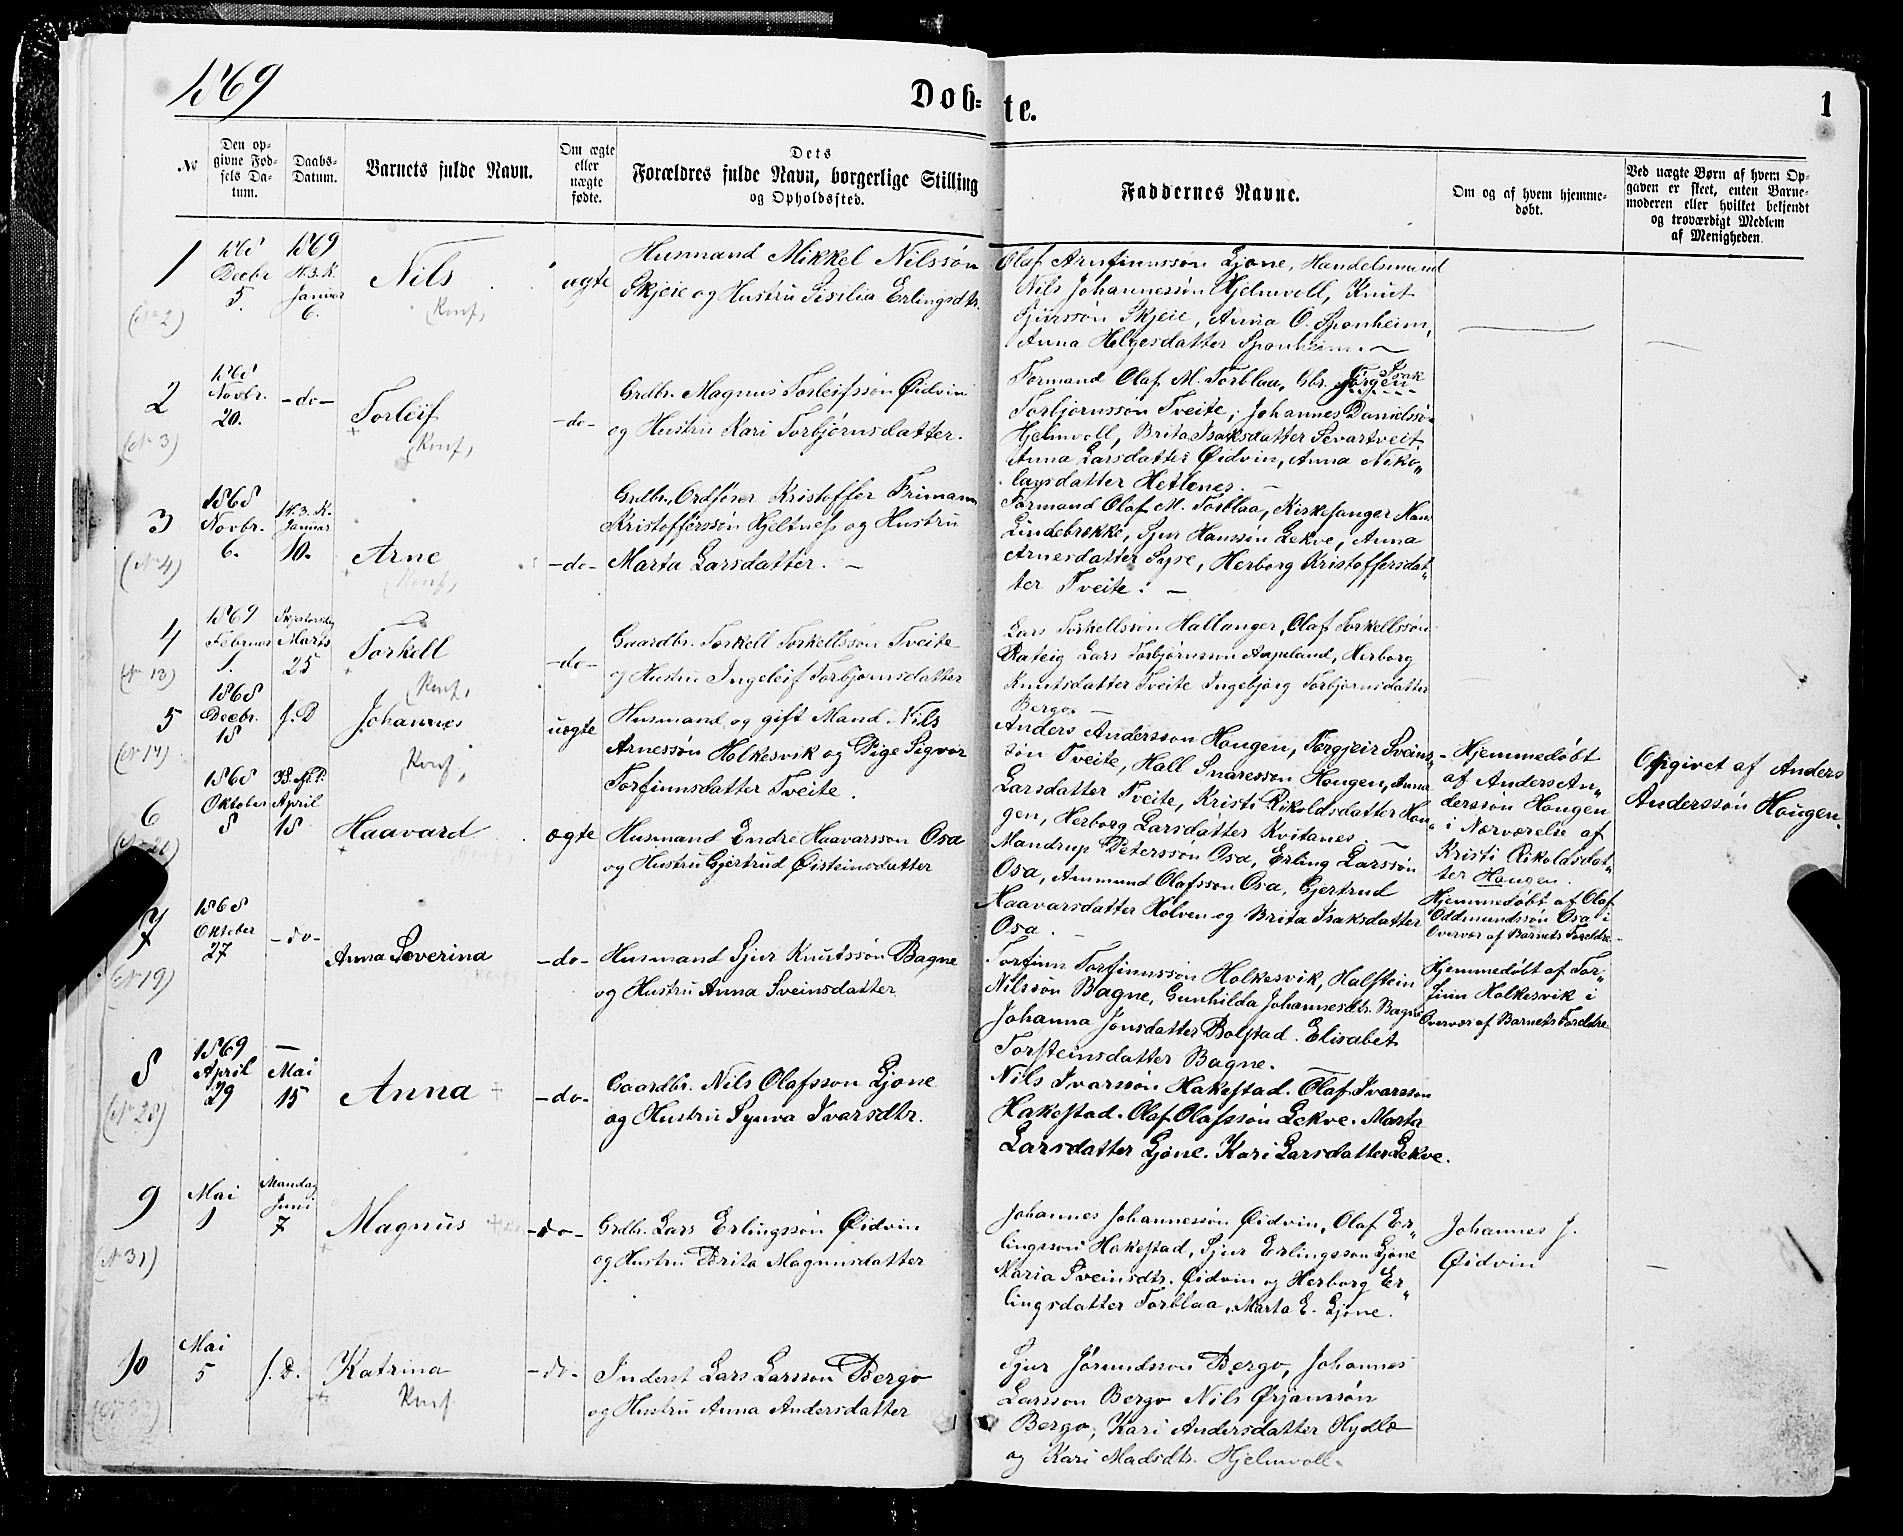 1869
Døb=
te.
1
№
Den op-
givne Fød-
sels Da-
tum.
Daabs-
Datum.
Barnets fulde Navn.
Om ægte
eller
uægte
fødte.
Dets
Forældres fulde Navn, borgerlige Stilling
og Opholdssted.
Faddernes Navne.
Om og af hvem hjemme-
døbt.
Ved uægte Børn af hvem Op-
gaven er skeet, enten Barne-
moderen eller hvilket bekjendt
og troværdigt Medlem
af Menigheden.
1
(No 2)
1868
Decbr
5.
1869
H.3.K.
Januar
6.
Nils
Konf,
ægte
Husmand Mikkel Nilssøn
Skjeie og Hustru Sisilia Erlingsdtr.
Olaf Arnfinnssøn Ljone, Handelsmand
Nils Johannessøn Hjelmvoll, Knut
Sjurssøn Skjeie, Anna O. Sponheim,
Anna Helgesdatter Sponheim.
2
(No 3)
1868
Novbr.
20.
-do-
Torleif
Konf,
-do-
Grdbr. Magnus Torleifssøn Øidvin
og Hustru Kari Torbjørnsdatter.
Formand Olaf M. Torblaa, Gbr. Jørgen Isak
Torbjørnssøn Tveite, Johannes Danielssøn
Hjelmvoll, Brita Isaksdatter Sevartveit
Anna Larsdatter Øidvin, Anna Niko„
laysdatter Hetlenes.
3
(No 4)
1868
Novbr.
6.
H.3.K.
Januar
10.
Arne
Konf,
-do-
Grdbr, Ordfører Kristoffer Frimann
Kristofferssøn Hjeltness og Hustru
Marta Larsdatter.
Formand Olaf M. Torblaa, Kirkesanger Hans
Lindebrække, Sjur Hanssøn Lekve, Anna
Arnesdatter Syse, Herborg Kristoffersdat„
ter Tveite.
4
(No 13)
1869
Februar
1.
Skjærtorsdag
Marts
25
Torkell
Konf,
-do-
Gaardbr. Torkell Torkellssøn Tveite
og Hustru Ingeleif Torbjørnsdatter
Lars Torkellssøn Hallanger, Olaf Torkellssøn
Rateig Lars Torbjørnssøn Aapeland, Herborg
Knutsdatter Tveite Ingebjørg Torbjørnsdatter
Bergo.
5
(No 17)
1868
Decbr.
18
s.D
Johannes
Konf,
uægte
Husmand og gift Mand Nils
Arnessøn Holkesvik og Pige Sigvor
Torfinnsdatter Tveite.
Anders Anderssøn Hougen, Torgjeir Sveins„
søn Tveite, Hall Snaressøn Hougen, Anna
Larsdatter Tveite, Kristi Rikoldsdatter Hou„
gen, Herborg Larsdatter Kvitanes
Hjemmedøbt
af Anders An„
derssøn Hougen
i Nærværelse af
Kristi Rikoldsdat„
ter Hougen.
Opgivet af Anders
Anderssøn Hougen.
6
1868
Oktober
8
April
18
Haavard
ægte
Husmand Endre Haavarssøn Osa
og Hustru Gjertrud Øisteinsdatter
Mandrup Peterssøn Osa, Erling Larssøn
Osa, Ammund Olafssøn Osa, Gjertrud
Haavarsdatter Holven og Brita Isaksdatter
Osa.
Hjemmedøbt af Olaf
Oddmundssøn Osa i
Overvær af Barnets Foreldre
7
(No 19)
1868
Oktober
27
-do-
Anna Severina
-do-
Husmand Sjur Knutssøn Bagne
og Hustru Anna Sveinsdatter
Torfinn Torfinnssøn Holkesvik, Halstein
Nilssøn Bagne, Gunhilda Johannesdtr. Bagne
Johanna Jonsdatter Bolstad. Elisabet
Torsteinsdatter Bagne.
Hjemmedøbt af Tor„
finn Holkesvik i
Overvær af Barnets Foreldre
8
(No 28)
1869
April
29
Mai
15
Anna
-do-
Gaardbr. Nils Olafssøn Ljone
og Hustru Synva Ivarsdtr.
Nils Ivarssøn Hakestad. Olaf Ivarssøn
Hakestad. Olaf Olafssøn Lekve. Marta
Larsdatter Ljone. Kari Larsdatter Lekve.
9
(No 31)
Mai
1
Mandag
Juni
7
Magnus
-do-
Grdbr. Lars Erlingssøn Øidvin
og Hustru Brita Magnusdatter
Johannes Johannessøn Øidvin, Olaf Er„
lingssøn Hakestad, Sjur Erlingssøn Ljone
Maria Sveinsdtr. Øidvin og Herborg Er„
lingsdatter Torblaa, Marta E. Ljone.
Johannes J.
Øidvin
10
Mai
5
s.D.
Katrina
Konf
-do-
Inderst Lars Larssøn Bergo
og Hustru Anna Andersdatter
Sjur Jørundssøn Bergo, Johannes
Larssøn Bergo Nils Ørjanssøn
Bergo, Kari Andersdatter Hydle
og Kari Madsdtr. Hjelmvoll.